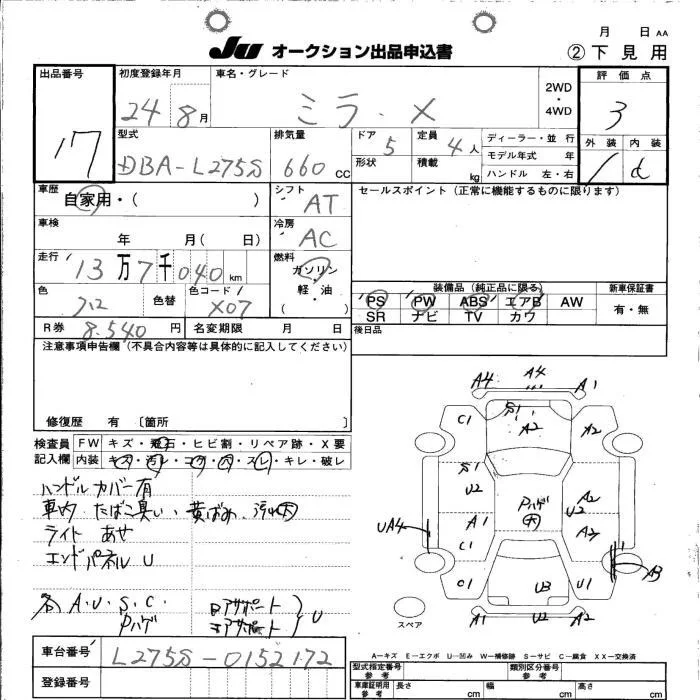 月 日 AA
JU オークション出品申込書 ②下見用
出品番号 初度登録年月 車名・グレード 2WD・4WD 評価点
17 24 8月 ミラ・X 3
型式 排気量 ドア 5 定員 4人 ディーラー・並行 外装 内装
DBA-L275S 660cc 形状 積載 kg モデル年式 年 d
ハンドル 左・右
車歴 自家用・( ) シフト AT セールスポイント(正常に機能するものに限ります)
車検 年 月( 日) 冷房 AC
走行 13万7千040km 燃料 ガソリン・軽・油
色 色替 色コード X07
装備品(純正品に限る) 新車保証書
PS PW ABS エアB AW 有・無
SR ナビ TV カワ
R券 8.540円 名変期限 月 日 後日品
注意事項申告欄(不具合内容等は具体的に記入してください)
修復歴 有 〔箇所 〕
検査員記入欄 FW キズ・飛石・ヒビ割・リペア跡・X要
内装 キズ・汚レ・コゲ・穴・スレ・キレ・破レ
ハンドルカバー有
車内 たばこ臭い、黄ばみ、汚れ大
ライト あせ
エンドパネル U
各 A.U.S.C. Pハゲ
ロアサポート U
A4 A4 A1
C1 S1 A2 A2
S1 U2 Pハゲ大 A2 U2
UA4 A1 C1 A2 A3
C1 U3 U1
スペア A1 U2 A2
A-キズ E-エクボ U-凹み W-補修跡 S-サビ C-腐食 XX-交換済
車台番号 L275S-0152172
登録番号
型式指定番号 参考 類別区分番号 参考
車庫証明用 参考 長さ cm 幅 cm 高さ cm